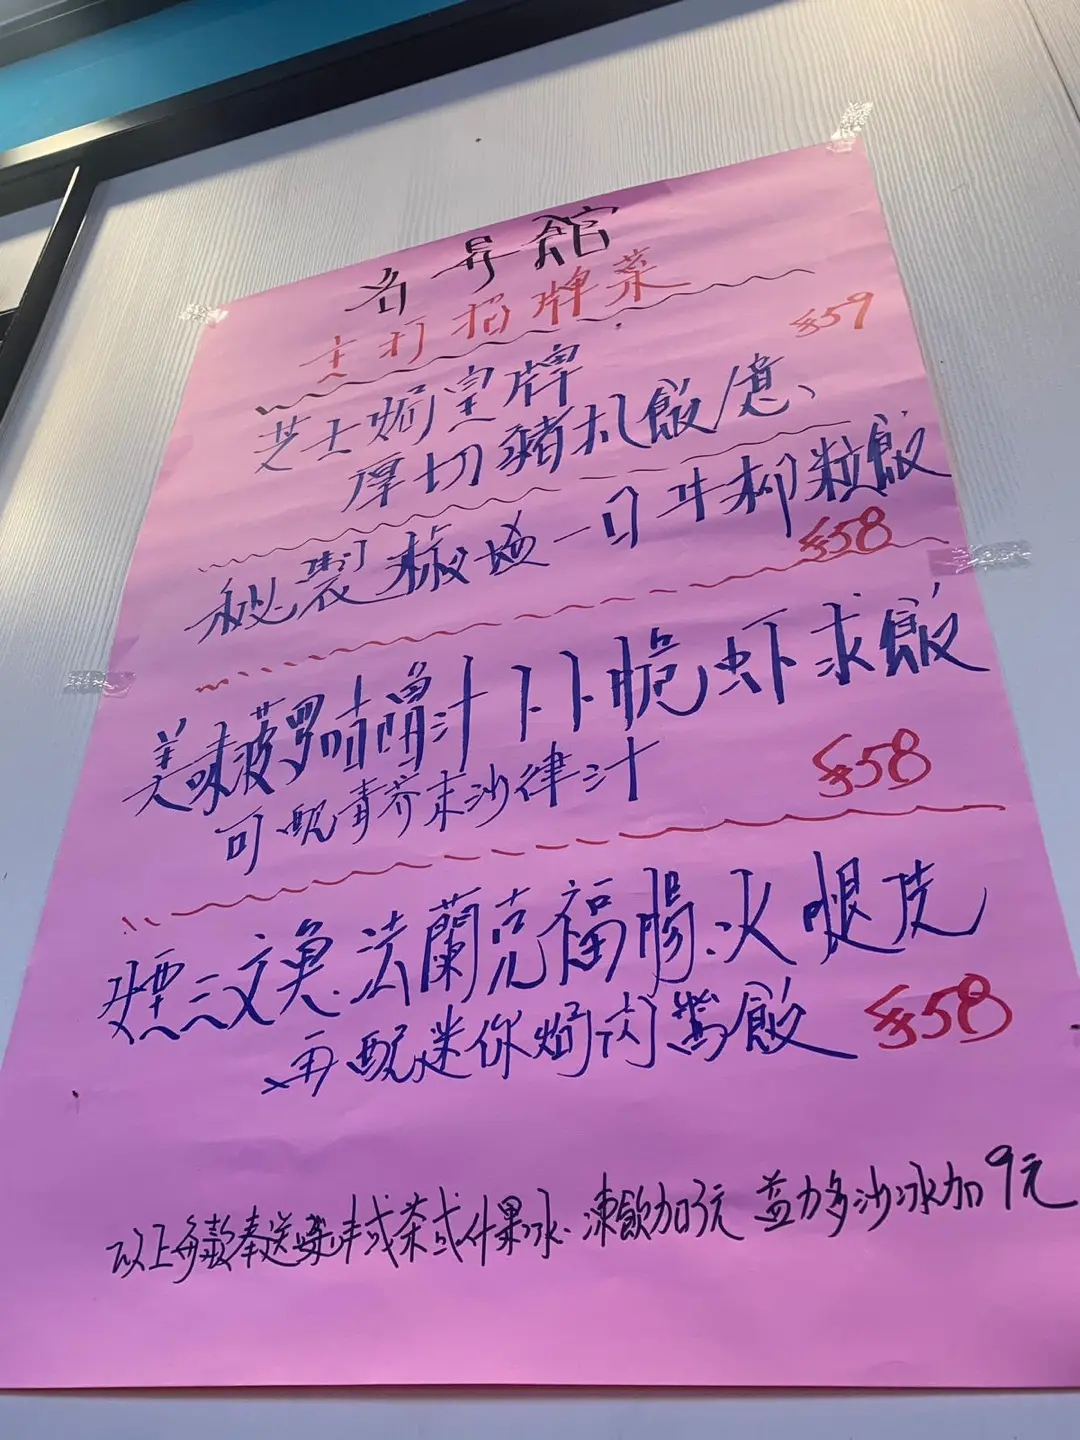 名昇館
主打招牌菜
芝士焗皇牌
$59
厚切豬扒飯/意、
秘製椒鹽一口牛柳粒飯
$58
美味菠罗咕嚕汁卜卜脆虾求飯
可配青芥末沙律汁
$58
煙三文魚.法蘭克福腸.火腿皮
再配迷你焗肉醬飯
$58
以上每款奉送茶或什果冰.凍飲加3元 益力多沙冰加9元